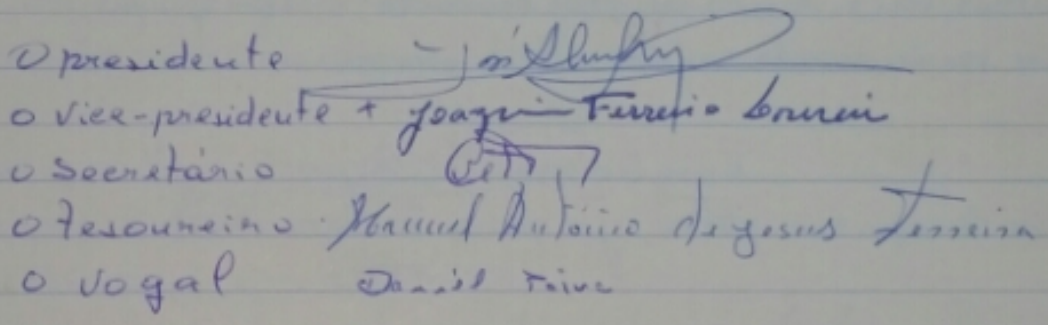 O presidente José
O vice-presidente + Joaquim Ferreira Loureiro
O secretário
O tesoureiro Manuel António de Jesus Ferreira
O vogal Daniel Paiva